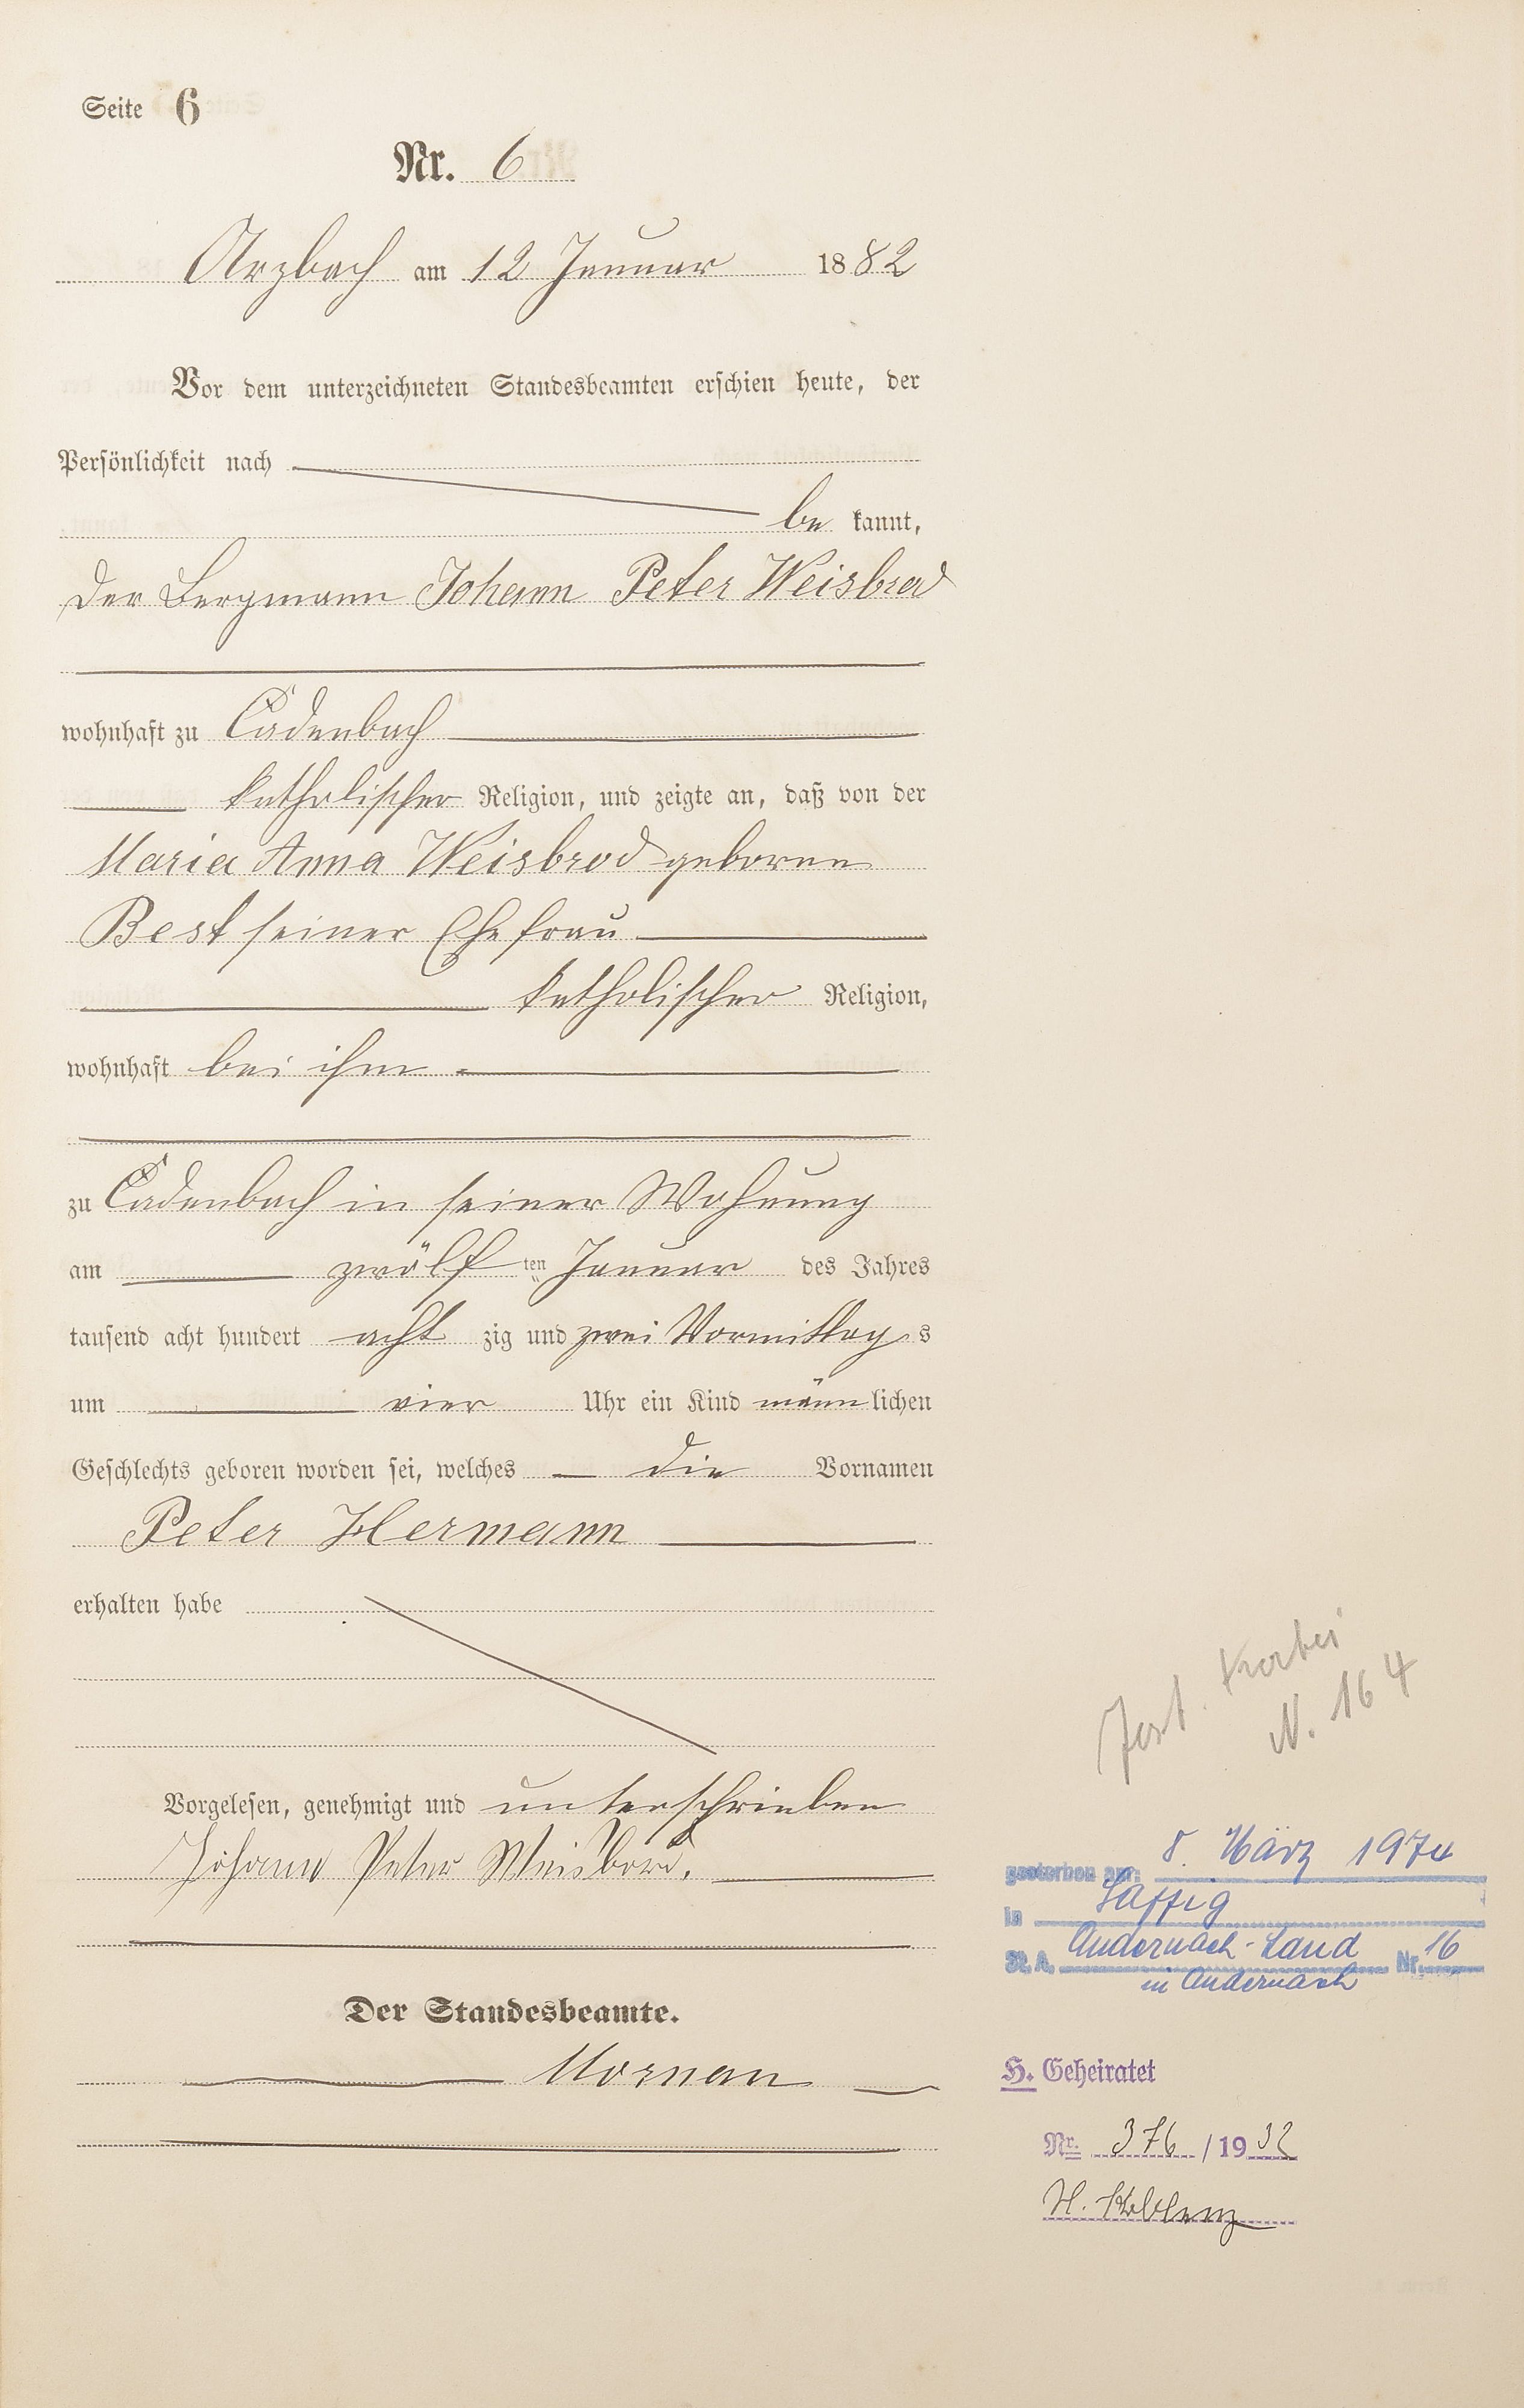 Seite 6
Nr. 6
Arzbach am 12 Januar 1882
Vor dem unterzeichneten Standesbeamten erschien heute, der
Persönlichkeit nach
be kannt,
der Bergmann Johann Peter Weisbrod
wohnhaft zu Cadenbach
katholischer Religion, und zeigte an, daß von der
Maria Anna Weisbrod geborene
Best seiner Ehefrau
katholischer Religion,
wohnhaft bei ihm
zu Cadenbach in seiner Wohnung
am zwölf ten Januar des Jahres
tausend acht hundert acht zig und zwei Vormittag s
um vier Uhr ein Kind männ lichen
Geschlechts geboren worden sei, welches die Vornamen
Peter Hermann
erhalten habe
Vorgelesen, genehmigt und unterschrieben
Johann Peter Weisbord.
Der Standesbeamte.
N. 164
gestorben am: 8. März 1974
in Saffig
St. A. Andernach-Land Nr. 16
in Andernach
H. Geheiratet
Nr. 376 / 1932
Koblenz